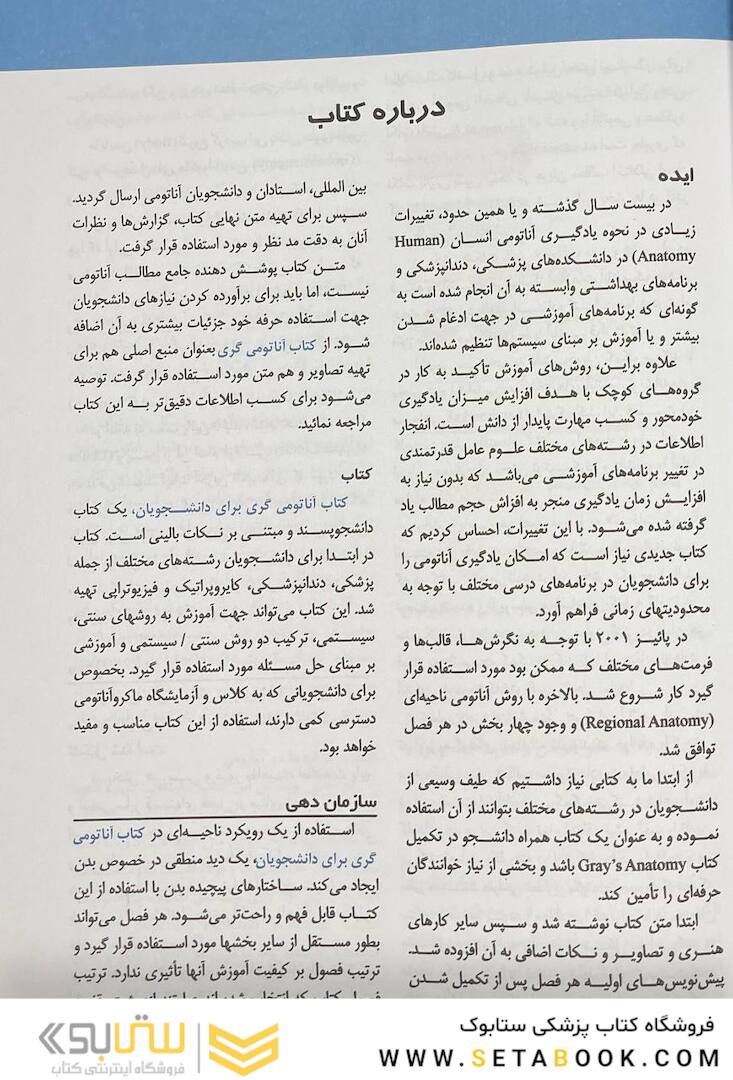 درباره کتاب
ایده
در بیست سال گذشته و یا همین حدود، تغییرات
زیادی در نحوه یادگیری آناتومی انسان (Human
Anatomy) در دانشکده‌های پزشکی، دندانپزشکی و
برنامه‌های بهداشتی وابسته به آن انجام شده است به
گونه‌ای که برنامه‌های آموزشی در جهت ادغام شدن
بیشتر و یا آموزش بر مبنای سیستم‌ها تنظیم شده‌اند.
علاوه براین، روش‌های آموزش تأکید به کار در
گروه‌های کوچک با هدف افزایش میزان یادگیری
خودمحور و کسب مهارت پایدار از دانش است. انفجار
اطلاعات در رشته‌های مختلف علوم عامل قدرتمندی
در تغییر برنامه‌های آموزشی می‌باشد که بدون نیاز به
افزایش زمان یادگیری منجر به افزاش حجم مطالب یاد
گرفته شده می‌شود. با این تغییرات، احساس کردیم که
کتاب جدیدی نیاز است که امکان یادگیری آناتومی را
برای دانشجویان در برنامه‌های درسی مختلف با توجه به
محدودیتهای زمانی فراهم آورد.
در پائیز ۲۰۰۱ با توجه به نگرش‌ها، قالب‌ها و
فرمت‌های مختلف که ممکن بود مورد استفاده قرار
گیرد کار شروع شد. بالاخره با روش آناتومی ناحیه‌ای
(Regional Anatomy) و وجود چهار بخش در هر فصل
توافق شد.
از ابتدا ما به کتابی نیاز داشتیم که طیف وسیعی از
دانشجویان در رشته‌های مختلف بتوانند از آن استفاده
نموده و به عنوان یک کتاب همراه دانشجو در تکمیل
کتاب Gray's Anatomy باشد و بخشی از نیاز خوانندگان
حرفه‌ای را تأمین کند.
ابتدا متن کتاب نوشته شد و سپس سایر کارهای
هنری و تصاویر و نکات اضافی به آن افزوده شد.
پیش‌نویس‌های اولیه هر فصل پس از تکمیل شدن
بین المللی، استادان و دانشجویان آناتومی ارسال گردید.
سپس برای تهیه متن نهایی کتاب، گزارش‌ها و نظرات
آنان به دقت مد نظر و مورد استفاده قرار گرفت.
متن کتاب پوشش دهنده جامع مطالب آناتومی
نیست، اما باید برای برآورده کردن نیازهای دانشجویان
جهت استفاده حرفه خود جزئیات بیشتری به آن اضافه
شود. از کتاب آناتومی گری بعنوان منبع اصلی هم برای
تهیه تصاویر و هم متن مورد استفاده قرار گرفت. توصیه
می‌شود برای کسب اطلاعات دقیق‌تر به این کتاب
مراجعه نمائید.
کتاب
کتاب آناتومی گری برای دانشجویان، یک کتاب
دانشجوپسند و مبتنی بر نکات بالینی است. کتاب
در ابتدا برای دانشجویان رشته‌های مختلف از جمله
پزشکی، دندانپزشکی، کایروپراتیک و فیزیوتراپی تهیه
شد. این کتاب می‌تواند جهت آموزش به روشهای سنتی،
سیستمی، ترکیب دو روش سنتی / سیستمی و آموزشی
بر مبنای حل مسئله مورد استفاده قرار گیرد. بخصوص
برای دانشجویانی که به کلاس و آزمایشگاه ماکروآناتومی
دسترسی کمی دارند، استفاده از این کتاب مناسب و مفید
خواهد بود.
سازمان دهی
استفاده از یک رویکرد ناحیه‌ای در کتاب آناتومی
گری برای دانشجویان، یک دید منطقی در خصوص بدن
ایجاد می‌کند. ساختارهای پیچیده بدن با استفاده از این
کتاب قابل فهم و راحت‌تر می‌شود. هر فصل می‌تواند
بطور مستقل از سایر بخشها مورد استفاده قرار گیرد و
ترتیب فصول بر کیفیت آموزش آنها تأثیری ندارد. ترتیب
فروشگاه کتاب پزشکی ستابوک
WWW.SETABOOK.COM
ستابوک
فروشگاه اینترنتی کتاب